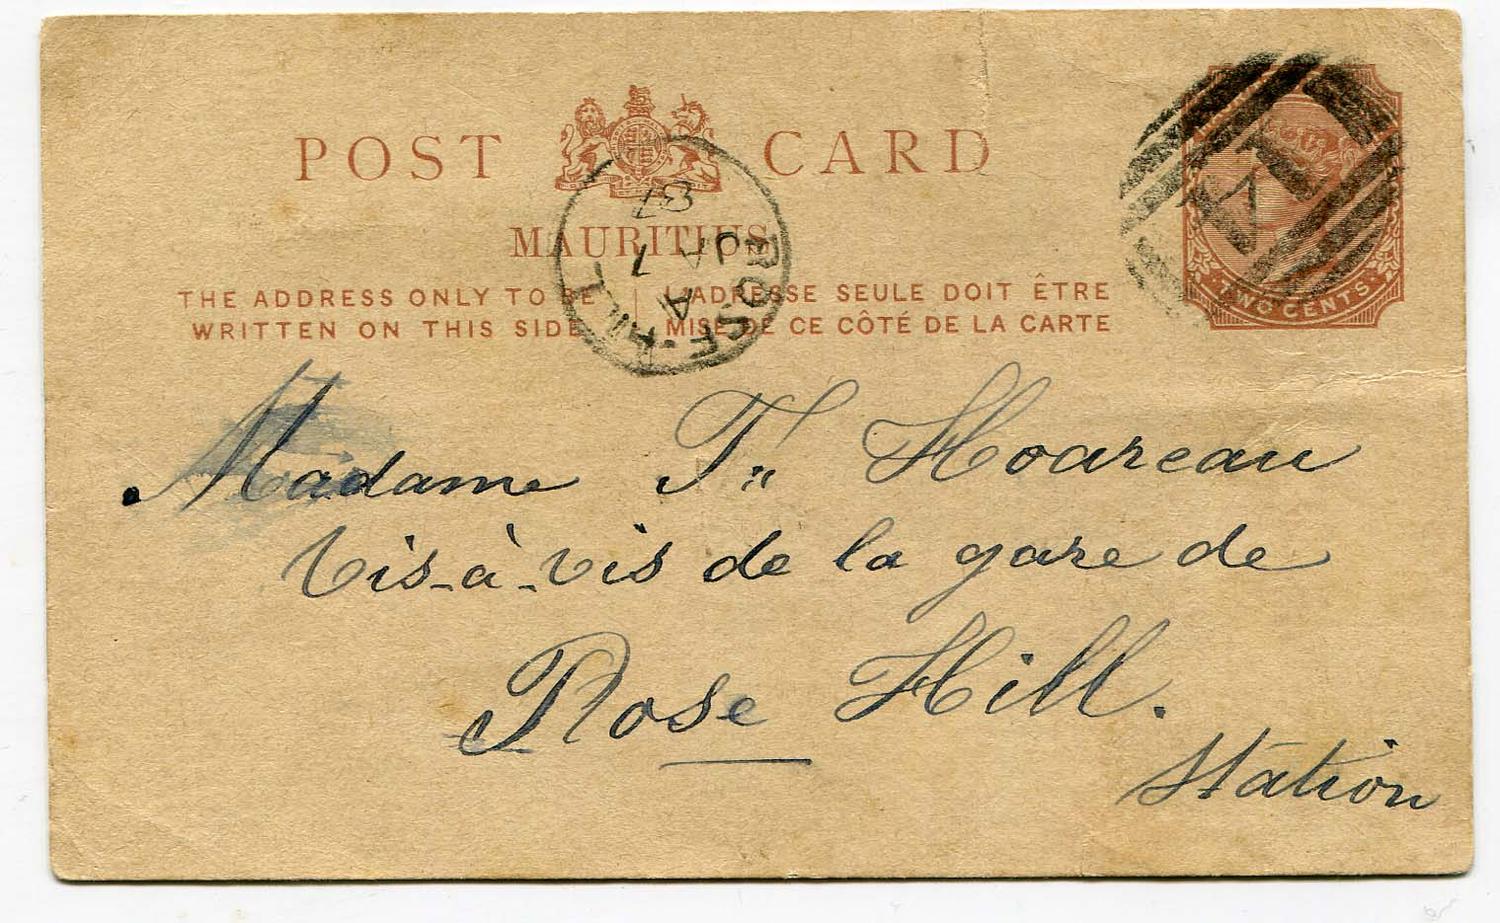 POST CARD
MAURITIUS
THE ADDRESS ONLY TO BE WRITTEN ON THIS SIDE
L'ADRESSE SEULE DOIT ÊTRE MISE DE CE CÔTÉ DE LA CARTE
TWO CENTS
ROSE-HILL
A
JA 7
87
Madame Th Hoareau
Vis-à-vis de la gare de
Rose Hill.
Station